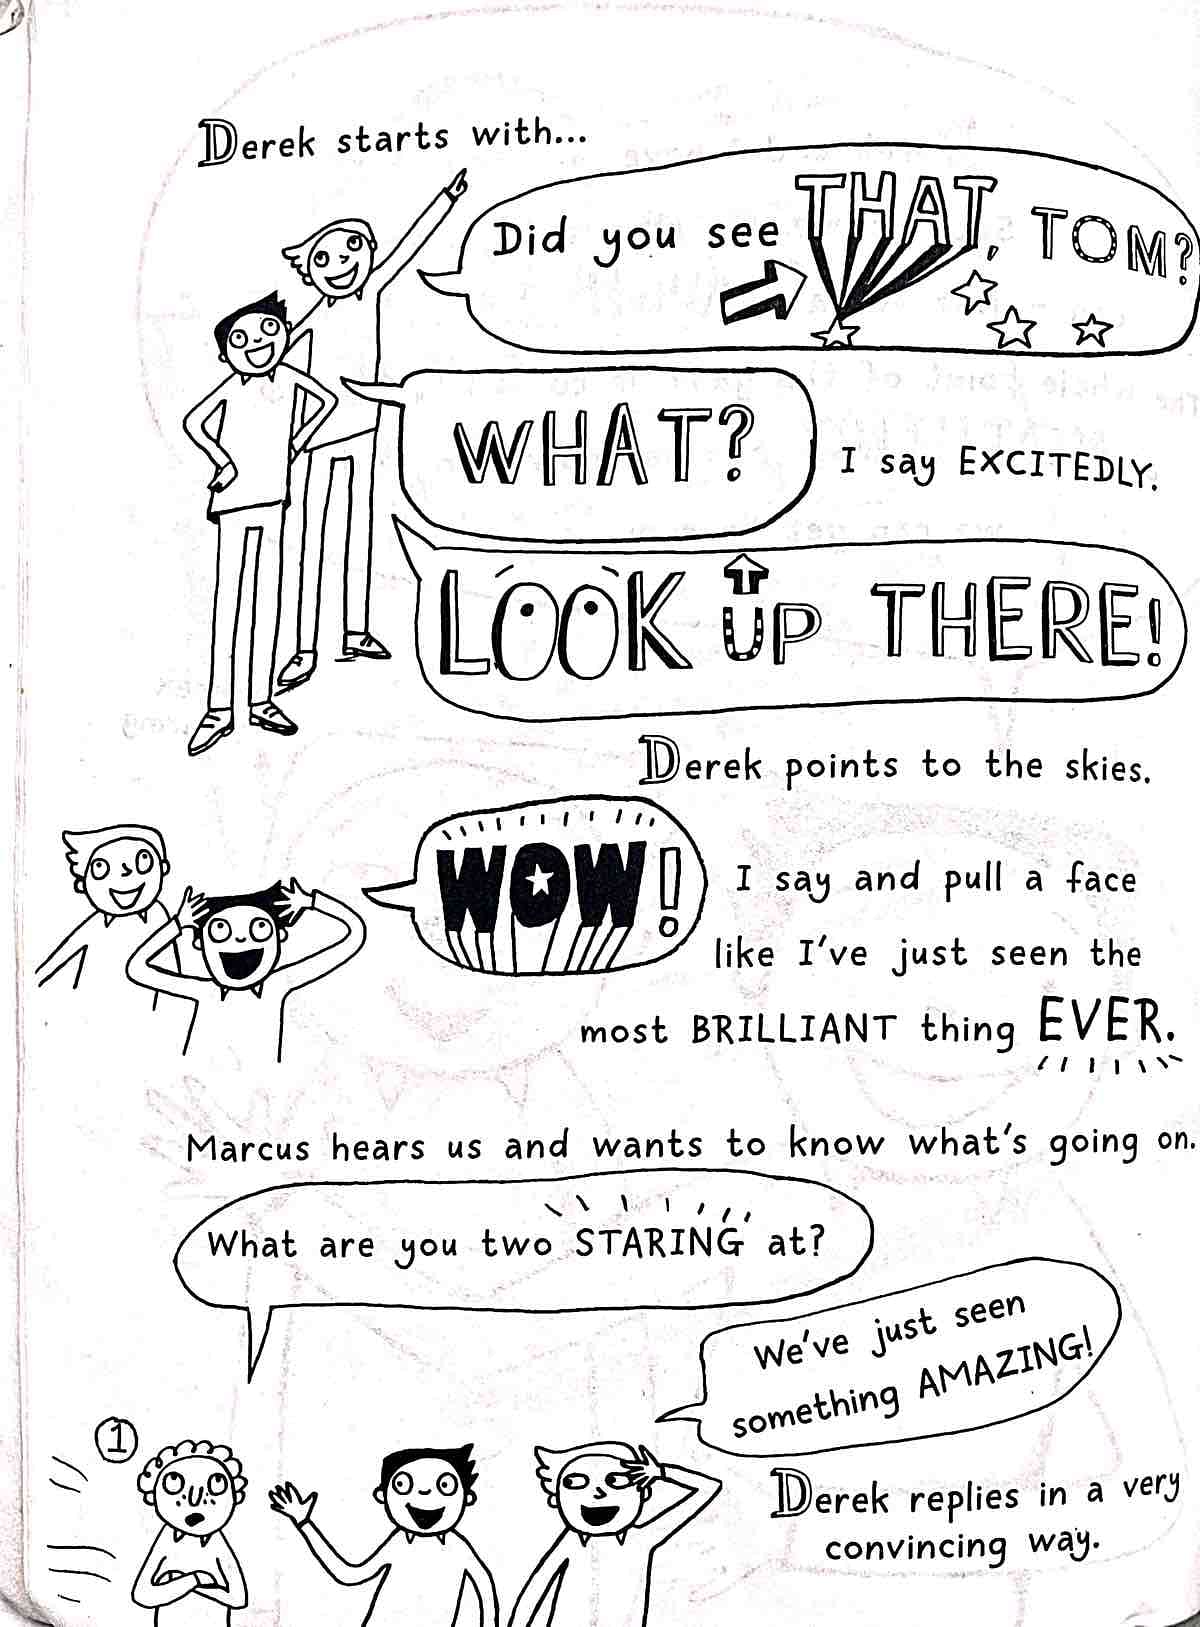 Derek starts with...
Did you see THAT, TOM?
WHAT?
I say EXCITEDLY.
LOOK UP THERE!
Derek points to the skies.
WOW!
I say and pull a face
like I've just seen the
most BRILLIANT thing EVER.
Marcus hears us and wants to know what's going on.
What are you two STARING at?
We've just seen
something AMAZING!
1
Derek replies in a very
convincing way.